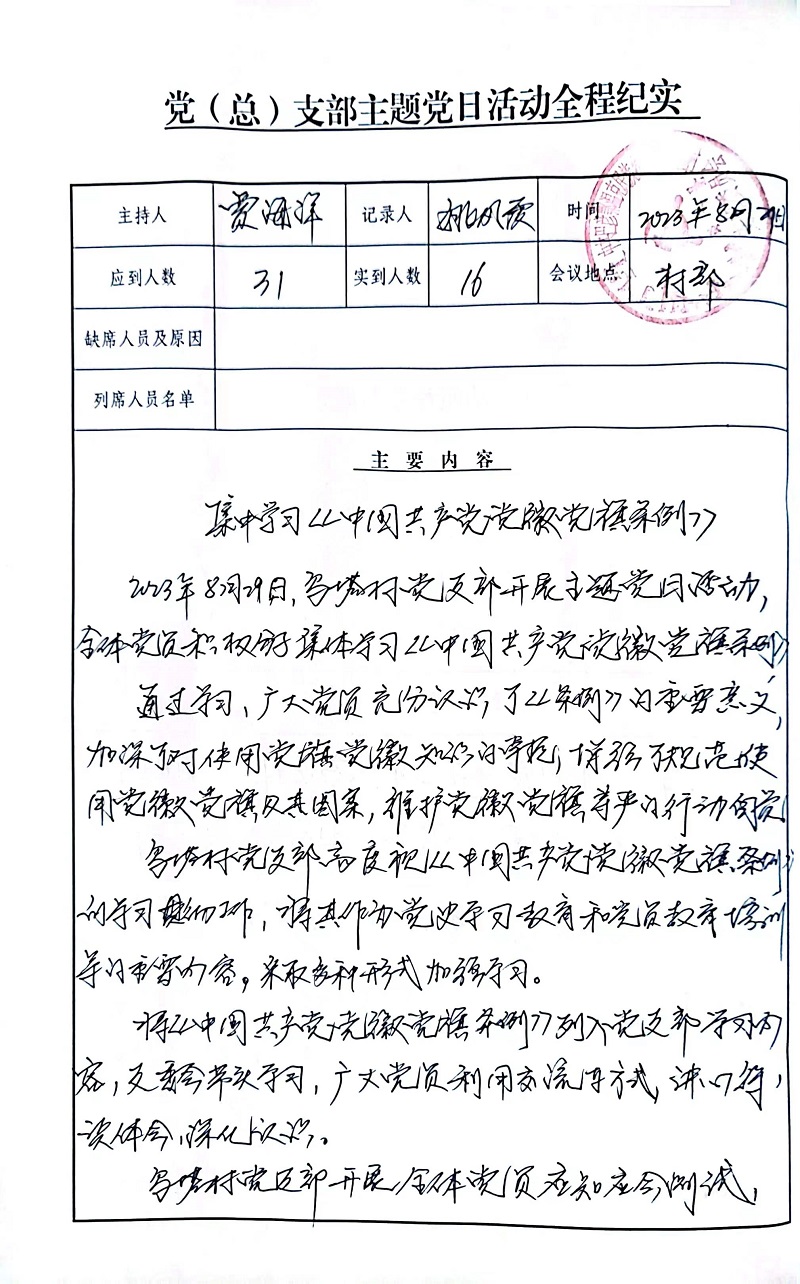 党（总）支部主题党日活动全程纪实
主持人 贾海洋 记录人 姚凤霞 时间 2023年8月29日
应到人数 31 实到人数 16 会议地点 村部
缺席人员及原因
列席人员名单
主要内容
集中学习《中国共产党党徽党旗条例》
2023年8月29日，乌塔村党支部开展主题党日活动，
全体党员积极参与集体学习《中国共产党党徽党旗条例》
通过学习，广大党员充分认识了《条例》的重要意义，
加深了对使用党旗党徽知识的掌握，增强了规范使
用党徽党旗及其图案，维护党徽党旗尊严的行动自觉。
乌塔村党支部高度视《中国共产党党徽党旗条例》
的学习贯彻工作，将其作为党史学习教育和党员教育培训
等的重要内容，采取多种形式加强学习。
将《中国共产党党徽党旗条例》列入党支部学习内
容，支委会带头学习，广大党员利用交流等方式，讲心得，
谈体会，深化认识。
乌塔村党支部开展全体党员应知应会测试，